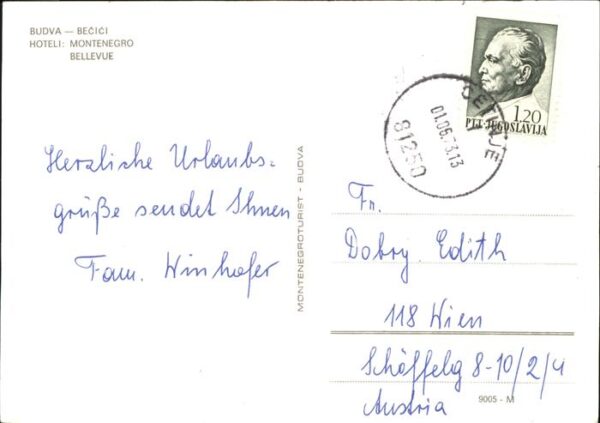 BUDVA — BEČIĆI
HOTELI: MONTENEGRO
BELLEVUE
1.20
PTT JUGOSLAVIJA
CETINJE
01.06.73.13
81250
Herzliche Urlaubs-
grüße sendet Ihnen
Fam. Winhofer
MONTENEGROTURIST - BUDVA
Fr.
Dobry Edith
118 Wien
Schäffelg 8-10/2/4
Austria
9005 - M